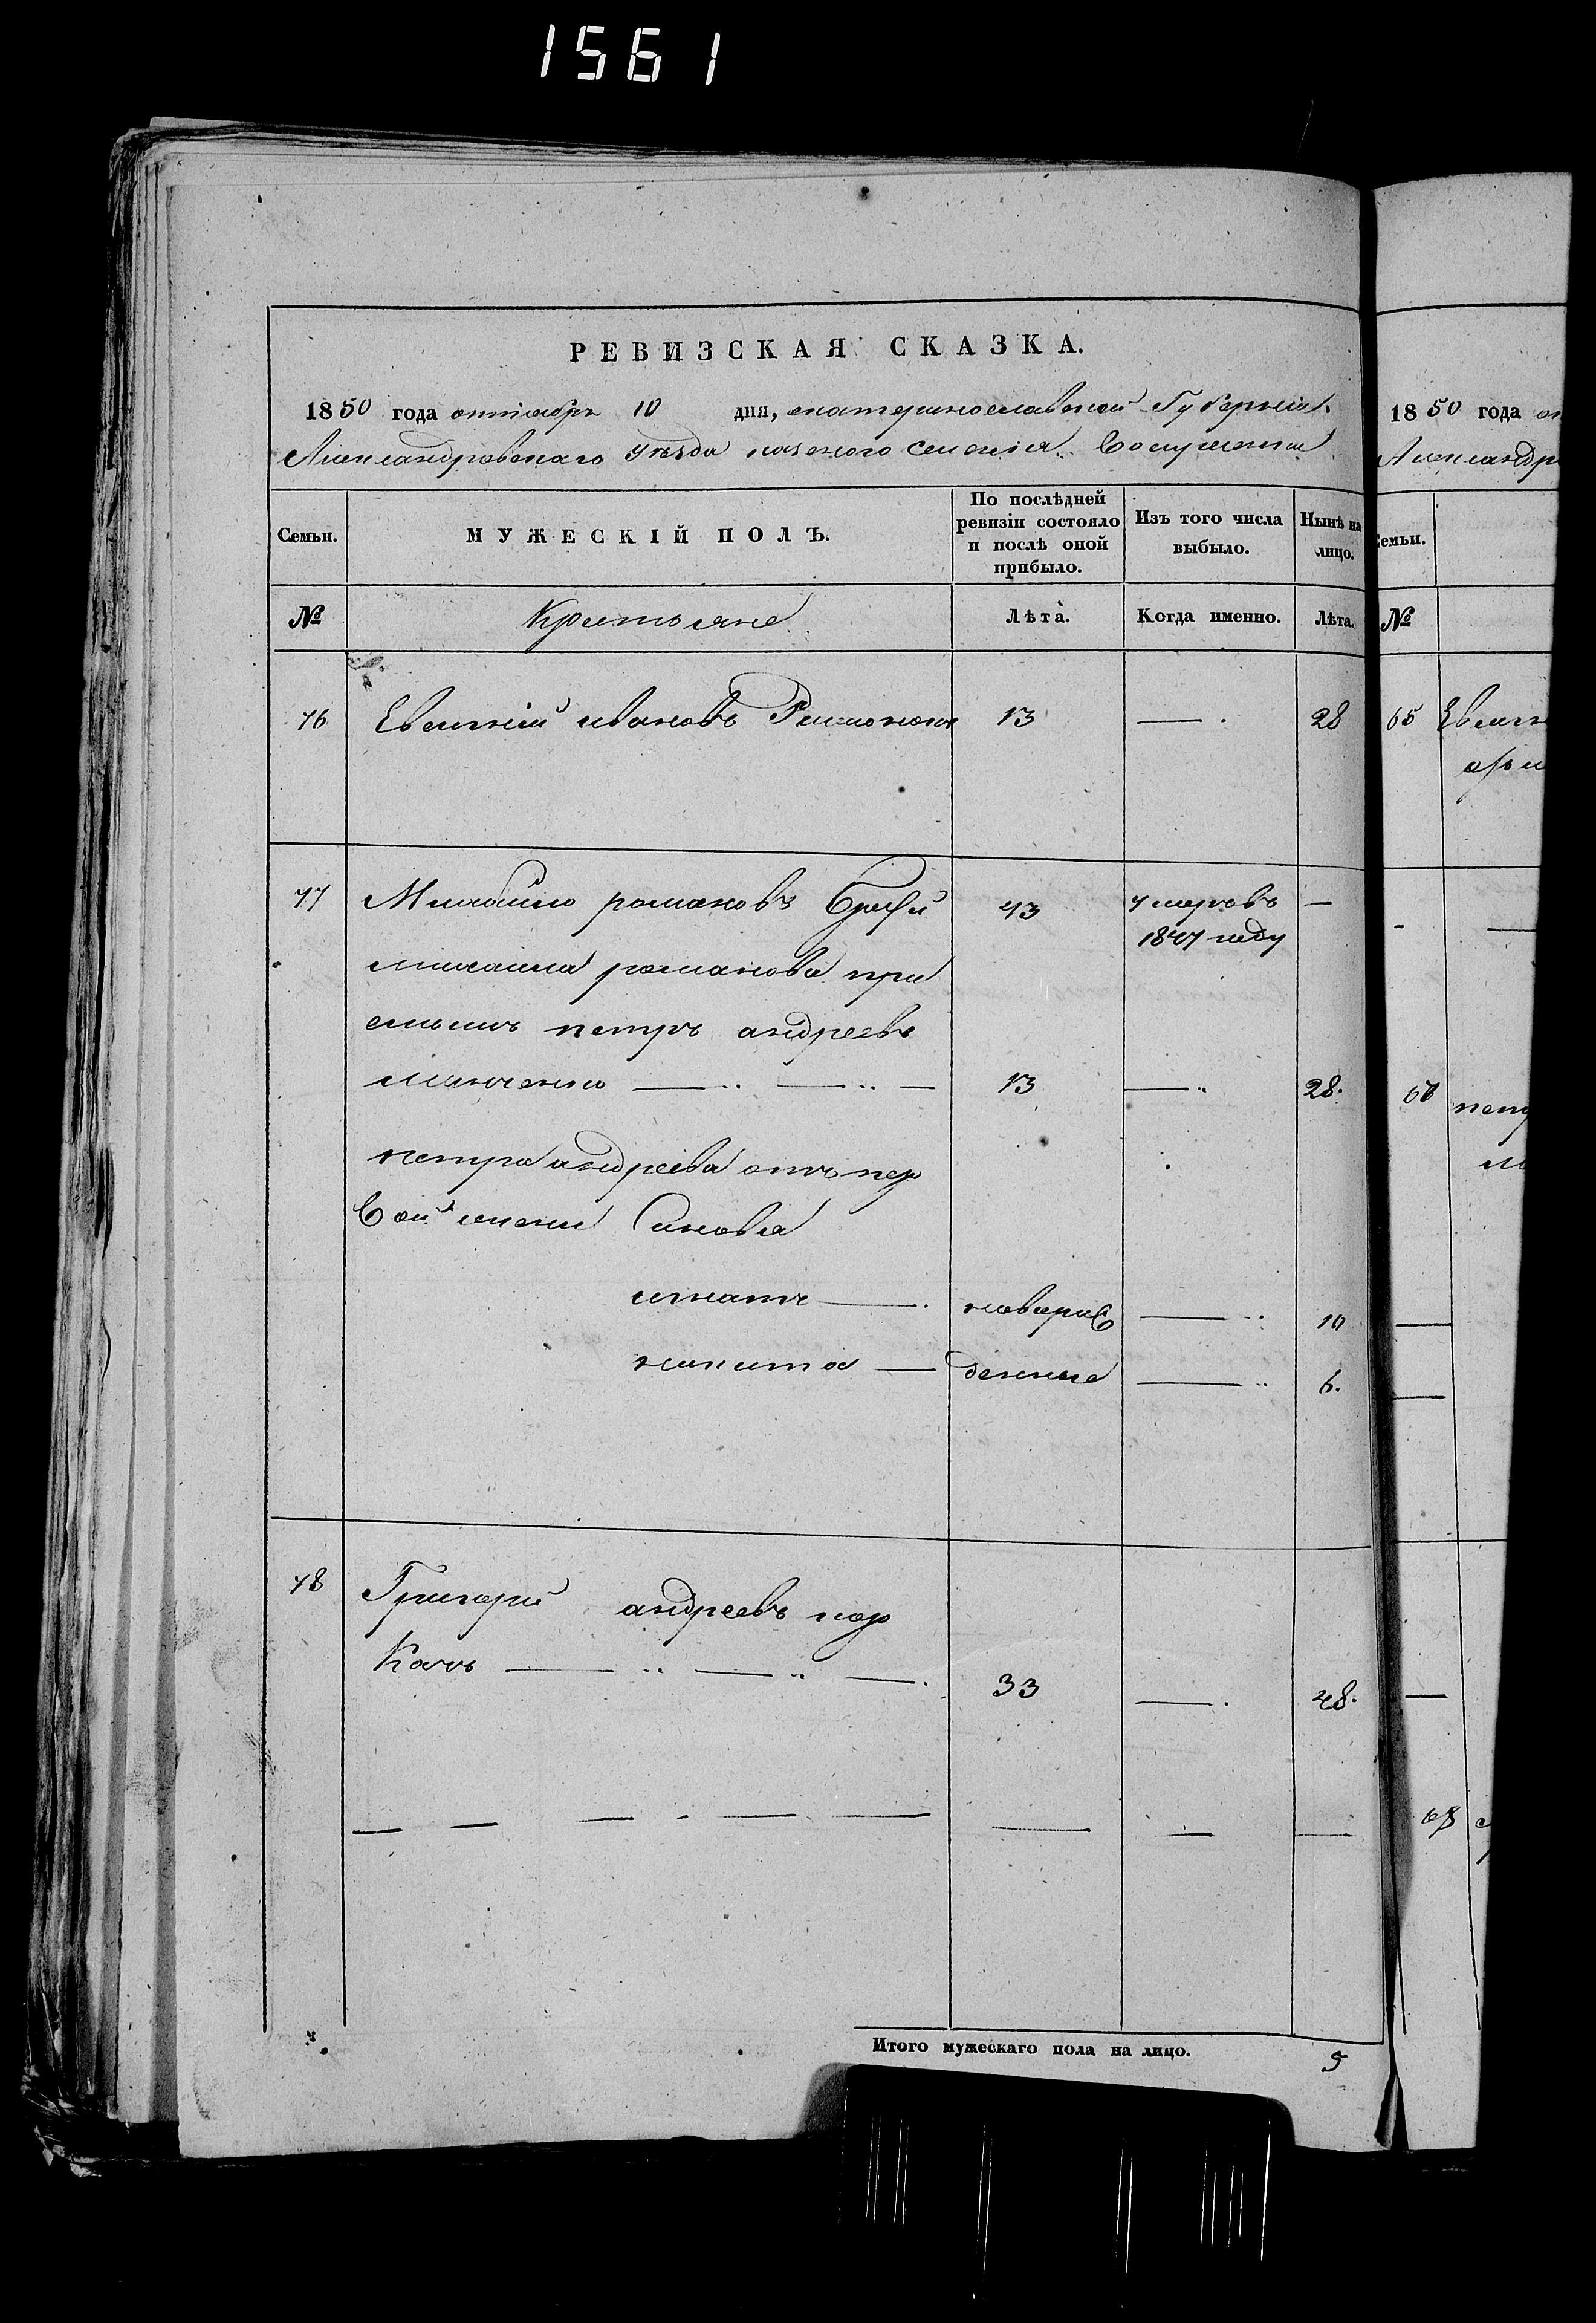 1561
РЕВИЗСКАЯ СКАЗКА.
1850 года октября 10 дня, екатеринославской Губерніи
Александровскаго уѣзда казеного селенія
Семьи.
МУЖЕСКІЙ ПОЛЪ.
По послѣдней ревизіи состояло и послѣ оной прибыло.
Изъ того числа выбыло.
Нынѣ на лицо.
№
Крестьяне
Лѣта.
Когда именно.
Лѣта.
76 Евгеній ивановъ 13 — 28
77 Михайло романовъ 43 умеръ въ —
1847 году
михаила романова при
емышъ петръ андреевъ
— — — 13 — 28.
петра андреева отъ пер
вой жены Синовья
игнатъ — новорож — 10
никита — денные — 6.
78 Григорій андреевъ
— — — 33 — 48.
Итого мужескаго пола на лицо. 5
1850 года
Александр
Семьи.
№
65
67
68